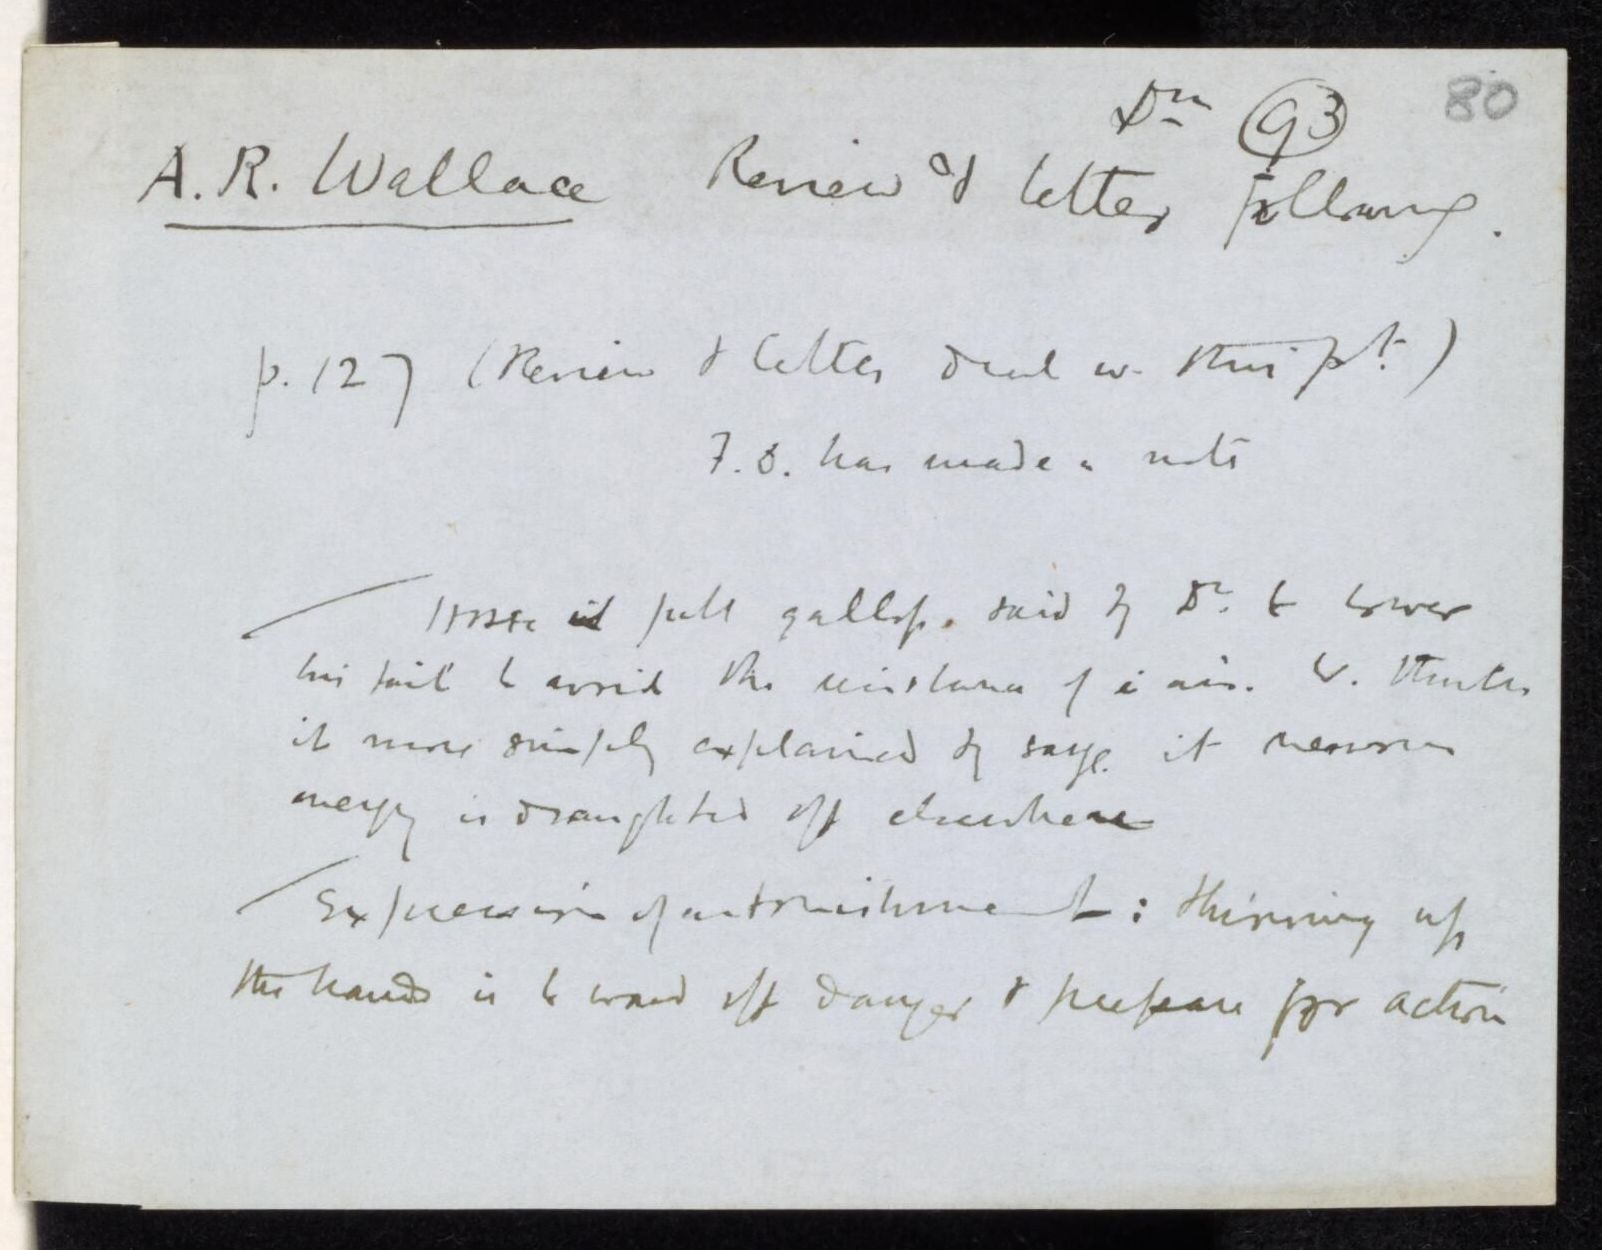 Dn 93 80
A. R. Wallace Review & letter following.
p. 127 (Review & letter deal w. this pt.)
F. D. has made a note
Horse at full gallop. said by Dr. to lower
his tail to avoid the resistance of i air. W. thinks
it more simply explained by sayg. it nervous
energy is draughted off elsewhere
Expression of astonishment : throwing up
the hands is to ward off danger & prepare for action